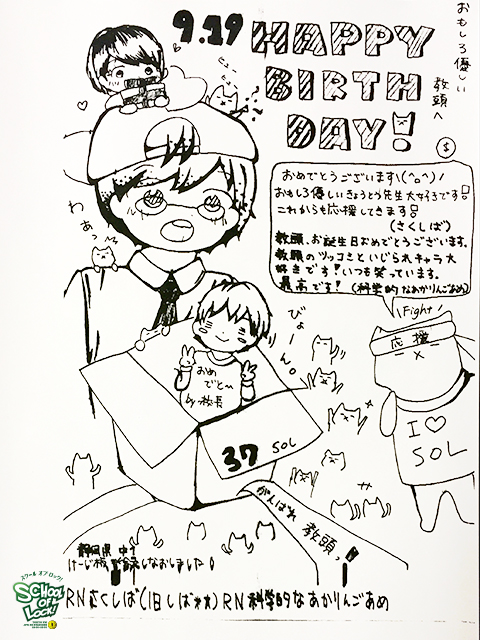 9.19 HAPPY
BIRTH
DAY!
おもしろ優しい
教頭へ
$
おめでとうございます\(^o^)/
おもしろ優しいきょうとう先生大好きです!
これからも応援してきます!
(さくしば)
教頭、お誕生日おめでとうございます。
教頭のツッコミといじられキャラ大
好きです!いつも笑っています。
最高です!(科学的なあかりんごあめ)
わぁっ
びよーん。
おめ
でと〜
by校長
37 SOL
Fight
応援
I♡
SOL
がんばれ 教頭っ!
静岡県 中1
スクール オブ ロック!
SCHOOL
OF
LOCK!
RN さくしば(旧しば**) RN 科学的なあかりんごあめ